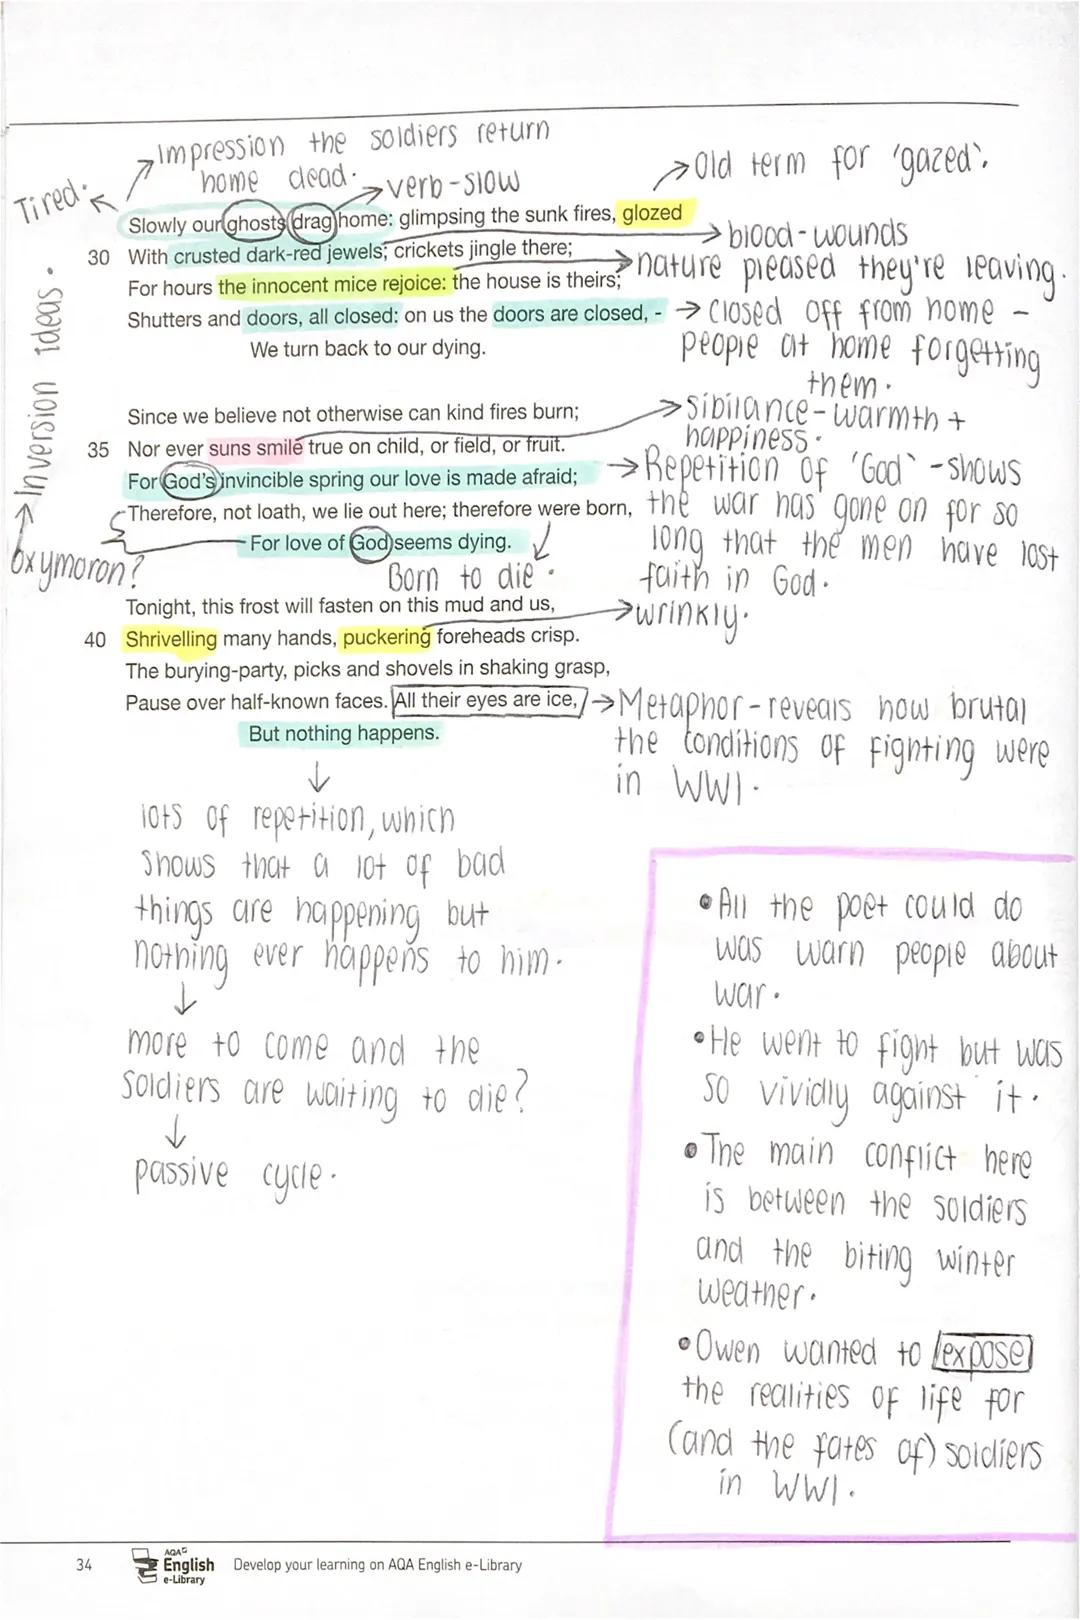 Impression the soldiers return
home dead.
Tired.
verb-slow
Old term for 'gazed'.
Slowly our ghosts drag home: glimpsing the sunk fires, glozed
blood-wounds
30 With crusted dark-red jewels; crickets jingle there;
nature pleased they're leaving.
For hours the innocent mice rejoice: the house is theirs;
Shutters and doors, all closed: on us the doors are closed, -
closed off from home -
people at home forgetting
them.
We turn back to our dying.
Inversion ideas.
Since we believe not otherwise can kind fires burn;
sibilance-warmth +
happiness.
35 Nor ever suns smile true on child, or field, or fruit.
For God's invincible spring our love is made afraid;
Repetition of 'God' -shows
the war has gone on for so
long that the men have lost
faith in God.
Therefore, not loath, we lie out here; therefore were born,
For love of God seems dying.
Oxymoron?
Born to die.
Tonight, this frost will fasten on this mud and us,
wrinkly.
40 Shrivelling many hands, puckering foreheads crisp.
The burying-party, picks and shovels in shaking grasp,
Pause over half-known faces. All their eyes are ice,
Metaphor-reveals how brutal
the conditions of fighting were
in WW1.
But nothing happens.
lots of repetition, which
shows that a lot of bad
things are happening but
nothing ever happens to him.
more to come and the
soldiers are waiting to die?
passive cycle.
• All the poet could do
was warn people about
war.
• He went to fight but was
so vividly against it.
• The main conflict here
is between the soldiers
and the biting winter
weather.
• Owen wanted to expose
the realities of life for
(and the fates of) soldiers
in WW1.
34
AQA
English
e-Library
Develop your learning on AQA English e-Library